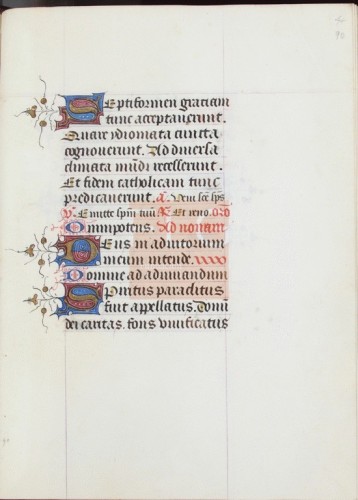 90
Septiformen graciam
tunc acceptaverunt.
Quare ydiomata cuncta
cognoverunt. Ad diversa
climata mūdi recesserunt.
Et fidem catholicam tunc
predicaverunt. a. Veni scē sps
v. Emitte spm tuū R. Et reno. oro
Omnipotens. Ad nonam
Deus in adiutorium
meum intende.
Domine ad adiuvandum
Spiritus paraclitus
fuit appellatus. Donū
dei caritas. fons vivificatus